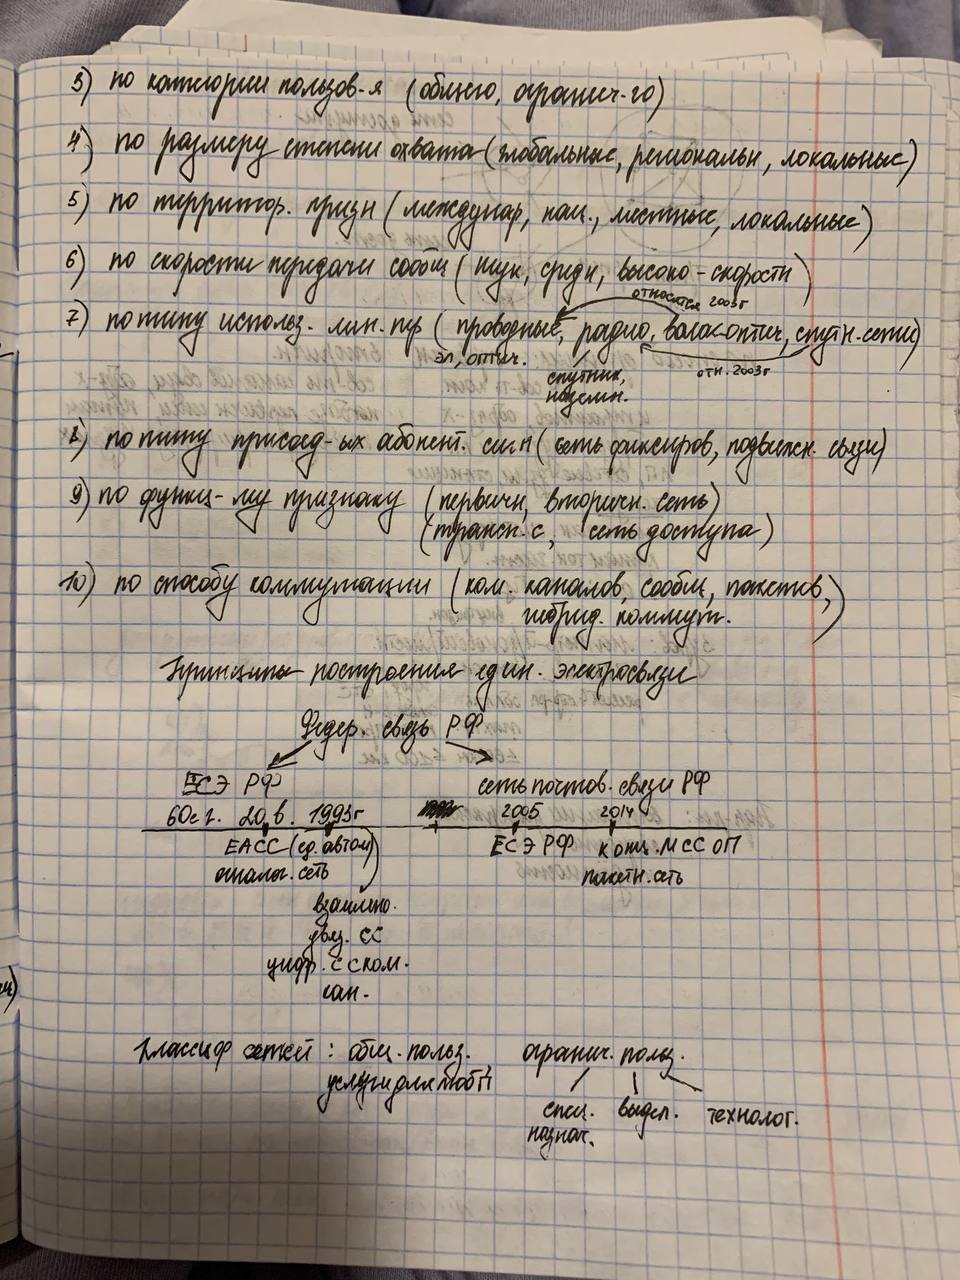 3) по категории пользов-я (общего, огранич-го)
4) по размеру степени охвата (глобальные, региональн, локальные)
5) по территор. призн (междунар, нац., местные, локальные)
6) по скорости передачи сообщ (низк, средн, высоко-скоростн)
относятся 2003г
7) по типу использ. лин. пер (проводные, радио, волок-оптич, спутн. сети)
эл, оптич.
отн. 2003г
спутник,
наземн.
8) по типу присоед-ых абонент. (сеть фиксиров, подвижн. связи)
9) по функц-му признаку (первичн, вторичн. сеть)
(трансп. с, сеть доступа)
10) по способу коммутации (ком. каналов, сообщ, пакетов,
гибрид. коммут.)
Принципы построения един. электросвязи
Федер. связь РФ
ЕСЭ РФ сеть почтов. связи РФ
60е г. 20 в. 1993г 2005 2014
ЕАСС (ед. автом) ЕСЭ РФ конц. МСС ОП
аналог. сеть пакетн. сеть
взаимно.
увяз. СС
цифр. с ком.
кан.
Классиф сетей: общ. польз. огранич. польз.
услуги для люб
спец. выдел. технолог.
назнач.